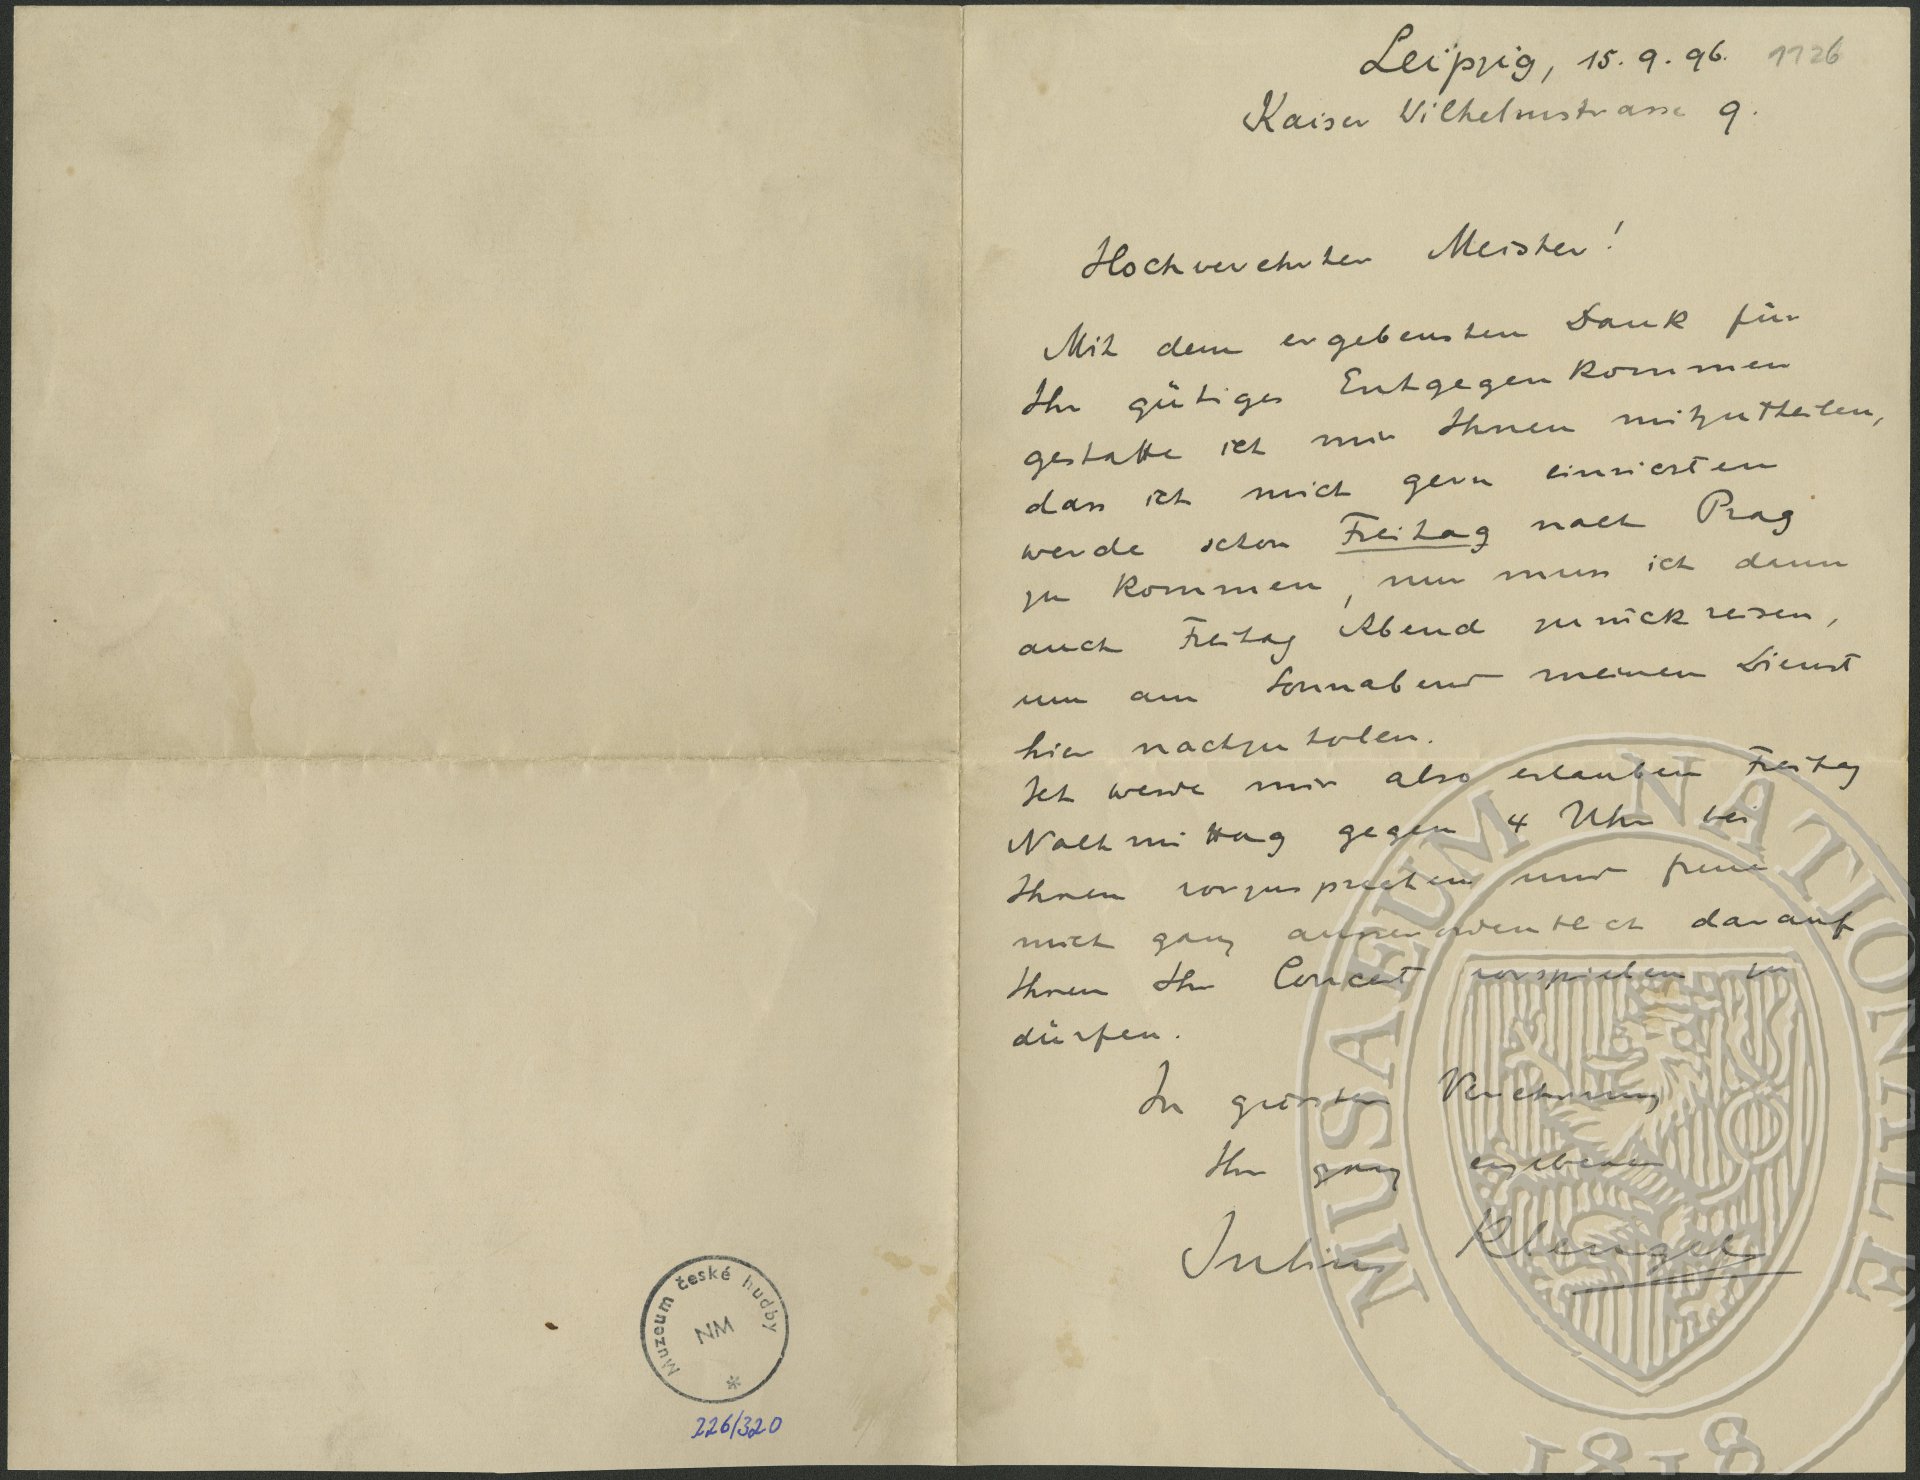 Leipzig, 15.9.96. 1126
Kaiser Wilhelmstrasse 9.
Hochverehrter Meister!
Mit dem ergebensten Dank für
Ihr gütiges Entgegenkommen
gestatte ich mir Ihnen mitzutheilen,
dass ich mich gern einrichten
werde schon Freitag nach Prag
zu kommen, nur muss ich dann
auch Freitag Abend zurückreisen,
um am Sonnabend meinen Dienst
hier nachzuholen.
Ich werde mir also erlauben Freitag
Nachmittag gegen 4 Uhr bei
Ihnen vorzusprechen und freue
mich ganz ausserordentlich darauf
Ihnen Ihr Concert vorspielen zu
dürfen.
In grösster Verehrung
Ihr ganz ergebener
Julius Klengel
Muzeum české hudby
NM
226/320
MUSAEUM NATIONALE
1818